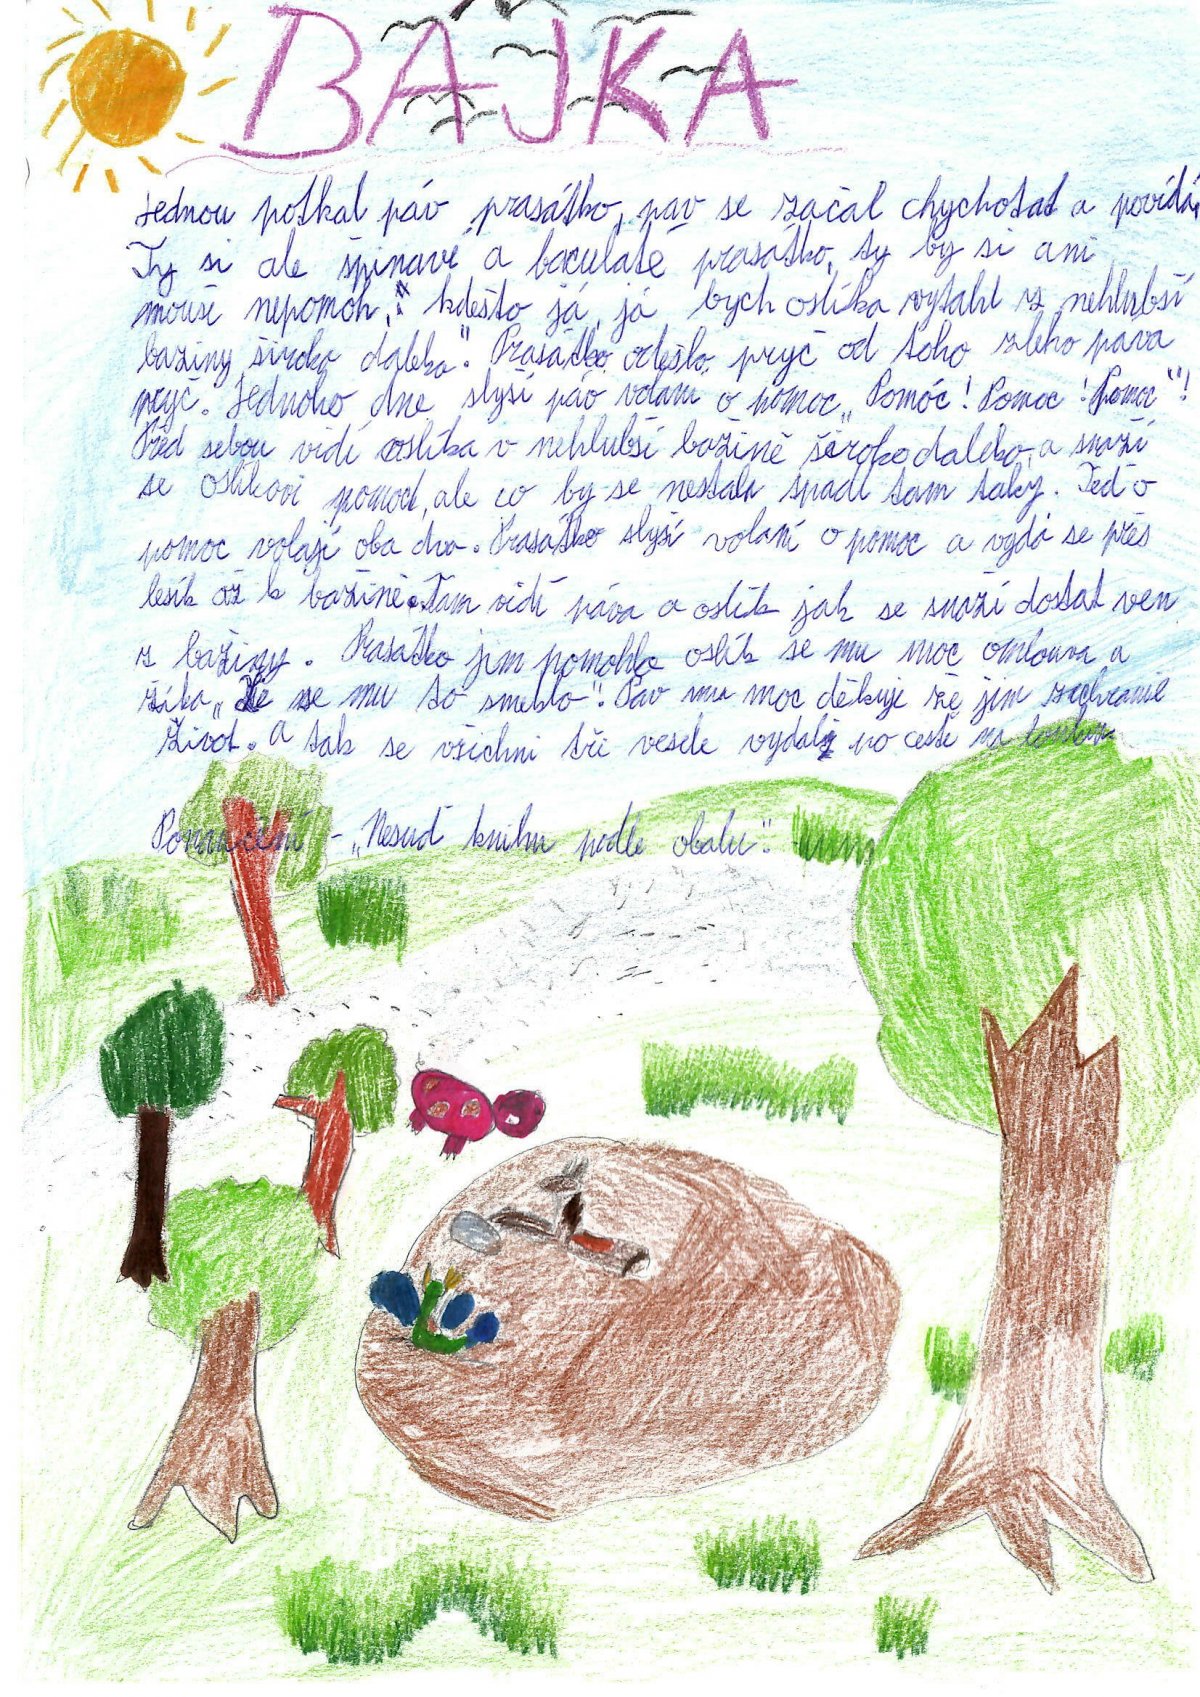 BAJKA
Jednou potkal páv prasátko, páv se začal chychotat a povídá,
Ty si ale špinavé a baculaté prasátko, ty by si ani
mouše nepomoh, kdešto já, já bych oslíka vytáhl z nehlubší
bažiny široko daleko". Prasátko odešlo pryč od toho zlého páva
pryč. Jednoho dne slyší páv volání o pomoc „Pomóc! Pomoc! Pomoc"!
Před sebou vidí oslíka v nehlubší bažině široko daleko, a snaží
se oslíkovi pomoct, ale co by se nestalo spadl tam taky. Teď o
pomoc volají oba dva. Prasátko slyší volání o pomoc a vydá se přes
lesík až k bažině. Tam vidí páva a oslík jak se snaží dostat ven
z bažiny. Prasátko jim pomohlo oslík se mu moc omlouva a
říka „že se mu to smeklo". Páv mu moc děkuje že jim zachranil
život. A tak se všichni tři vesele vydali po cestě na
Ponaučení - „Nesuď knihu podle obalu".